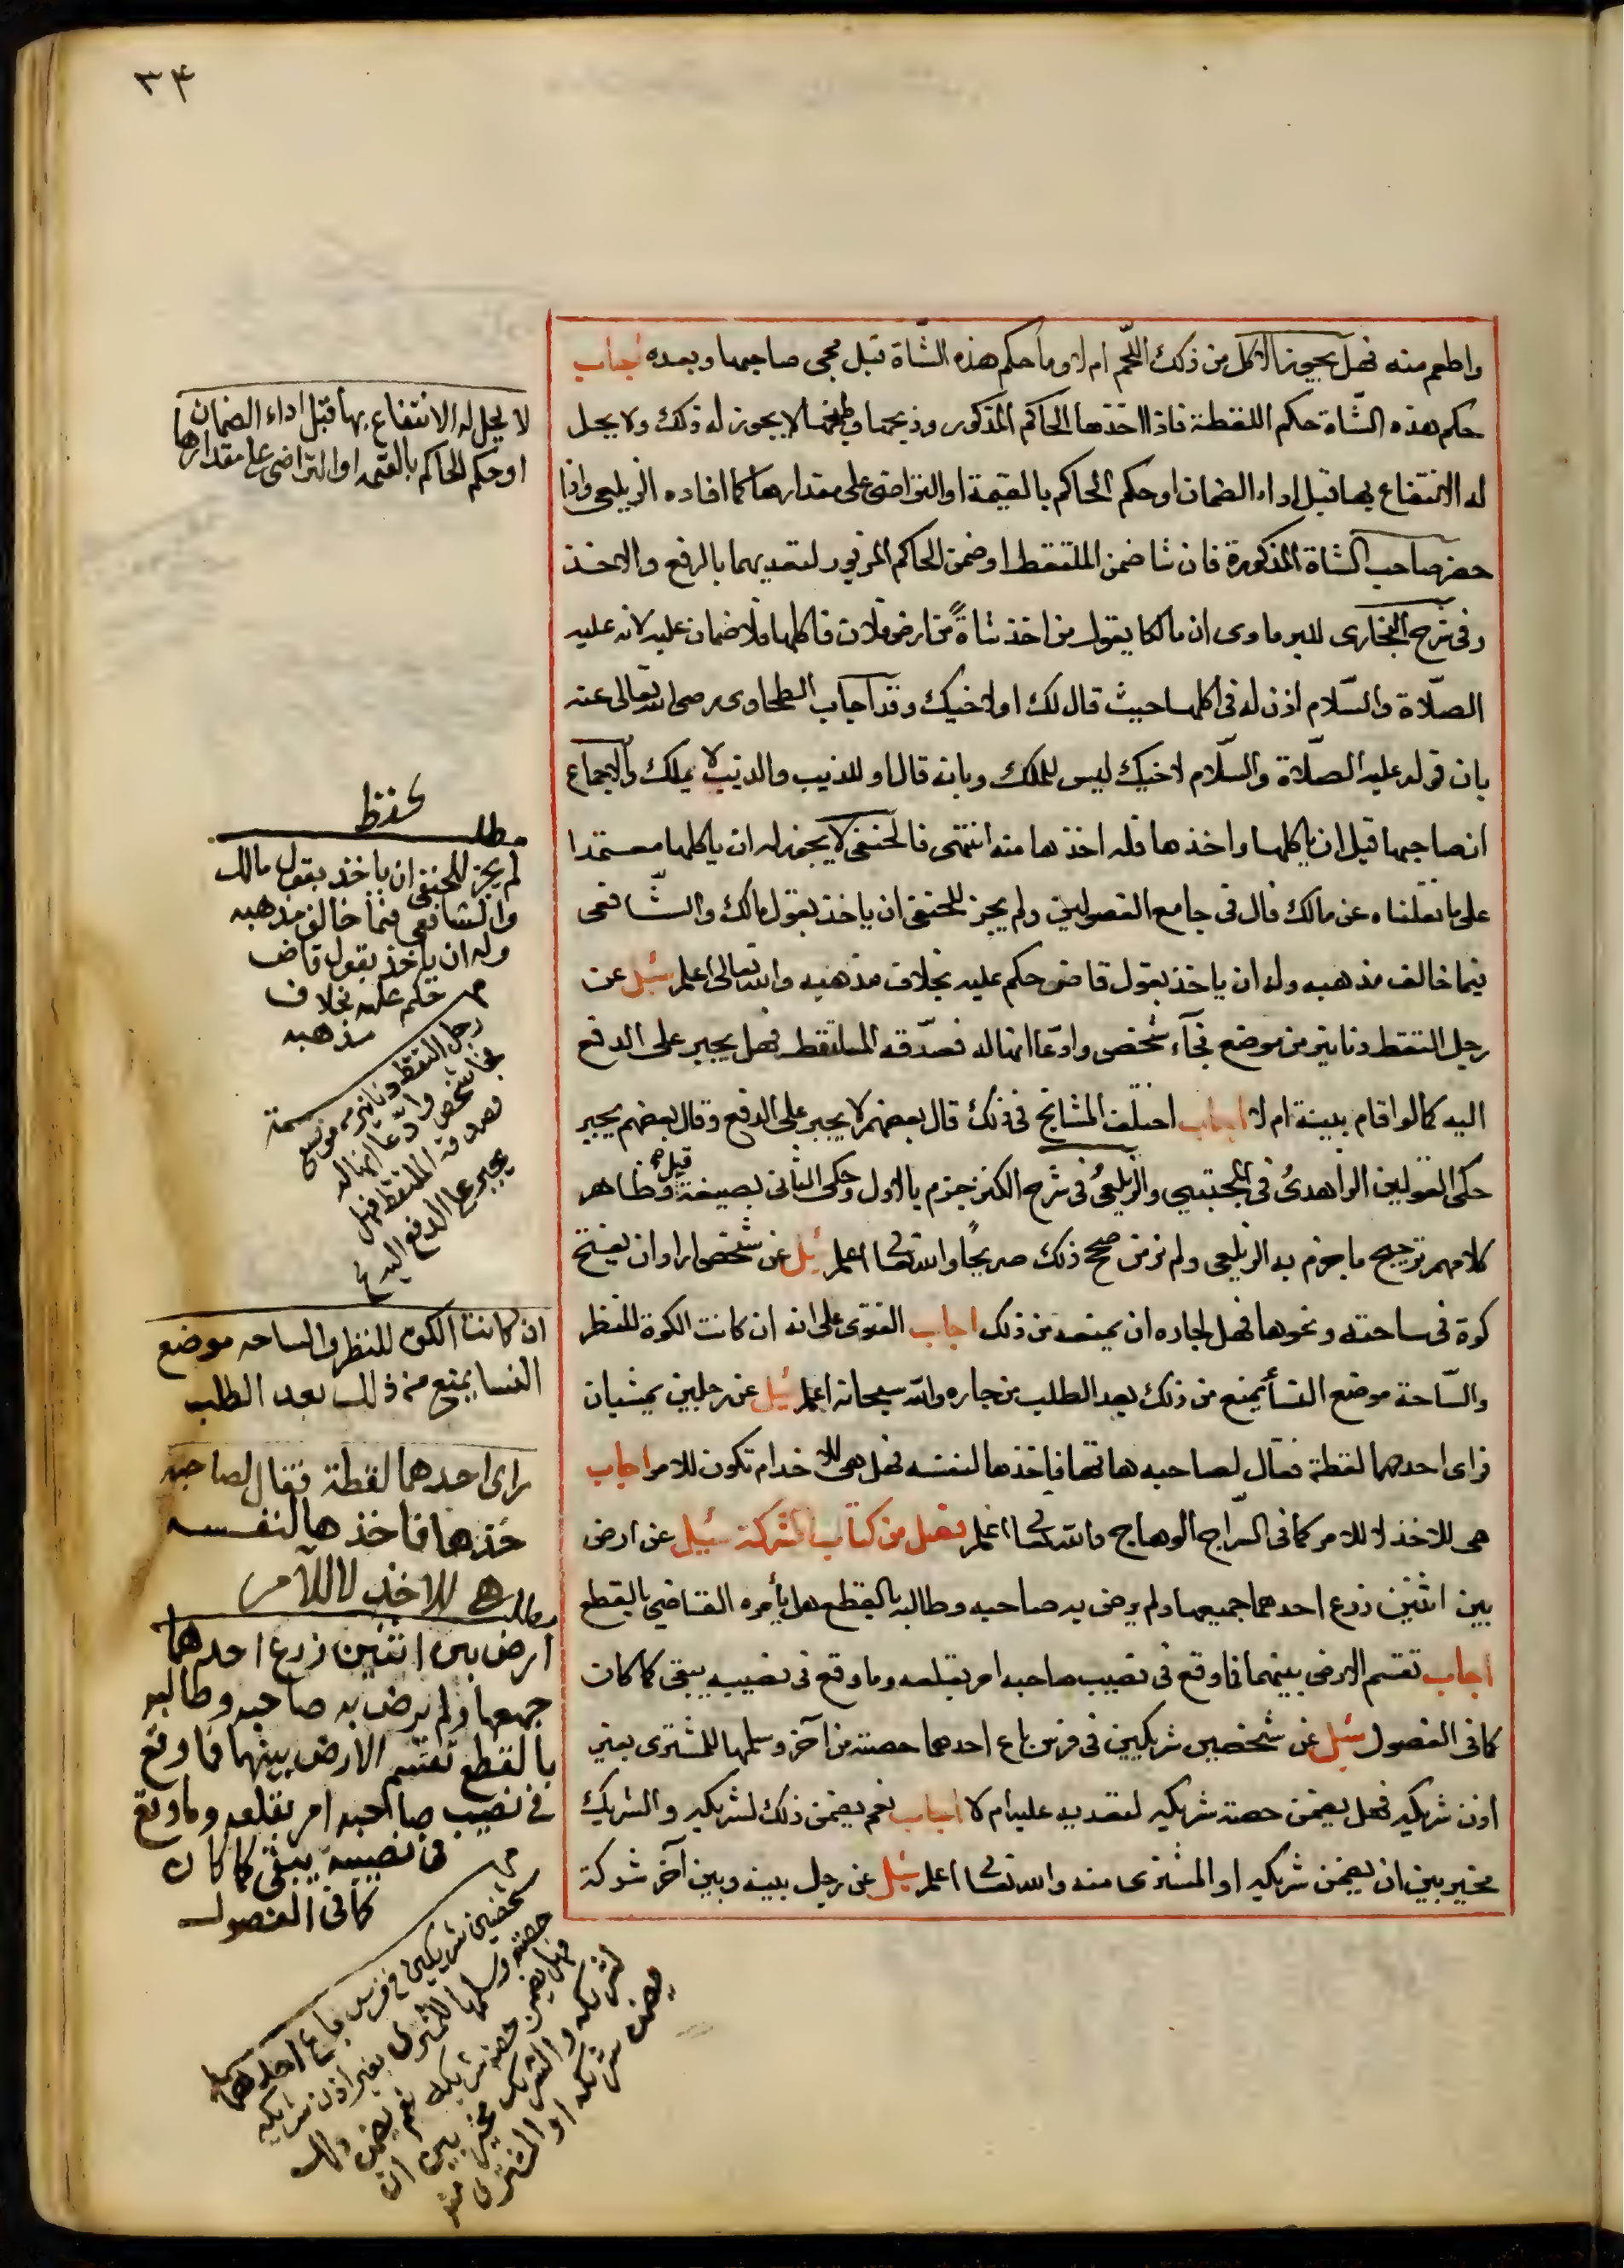 ٣٤
واطعم منه فهل يجوز الاكل من ذلك اللحم ام لا وما حكم هذه الشاة قبل مجى صاحبها وبعده اجاب
حكم هذه الشاة حكم اللقطة فاذا اخذها الحاكم المذكور وذبحها وطبخها لا يجوز له ذلك ولا يحل
له الانتفاع بها قبل اداء الضمان او حكم الحاكم بالقيمة او التراضى على مقدارها كما افاده الزيلعى واذا
حضر صاحب الشاة المذكورة فان شا ضمن الملتقط او ضمن الحاكم المزبور لتعديهما بالرفع والاخذ
وفى شرح البخارى للبرماوى ان مالكا يقول من اخذ شاةً من ارض فلان فاكلها فلا ضمان عليه لانه عليه
الصلاة والسلام اذن له فى اكلها حيث قال لك او لاخيك وقد اجاب الطحاوى رضى الله تعالى عنه
بان قوله عليه الصلاة والسلام لاخيك ليس للملك وبانه قال او للذيب والذيب لا يملك والاجماع
ان صاحبها قبل ان ياكلها واخذها فله اخذها منه انتهى فالحنفى لا يجوز له ان ياكلها معتمدا
على ما نقلناه عن مالك قال فى جامع الفصولين ولم يجز للحنفى ان ياخذ بقول مالك والشافعى
فيما خالف مذهبه وله ان ياخذ بقول قاض حكم عليه بخلاف مذهبه والله تعالى اعلم سئل عن
رجل التقط دنانير من موضع فجآء شخص وادّعا انها له فصدّقه الملتقط فهل يجبر على الدفع
اليه كما لو اقام ببينة ام لا اجاب اختلف المشايخ فى ذلك قال بعضهم لا يجبر على الدفع وقال بعضهم يجبر
حكى القولين الزاهدىُ فى المجتبى والزيلعىُ فى شرح الكنز جزم بالاول وحكى الثانى بصيغة قيل وظاهر
كلامهم ترجيح ما جزم به الزيلعى ولم نر من صحح ذلك صريحًا والله تعالى اعلم سئل عن شخص اراد ان يفتح
كوة فى ساحته ونحوها فهل لجاره ان يمنعه من ذلك اجاب الفتوى على انه ان كانت الكوة للنظر
والسّاحة موضع النسأ يمنع من ذلك بعد الطلب من جاره والله سبحانه اعلم سئل عن رجلين يمشيان
فراى احدهما لقطة فقال لصاحبه هاتها فاخذها لنفسه فهل هى للاخد ام تكون للامر اجاب
هى للاخذ لا للامر كما فى السّراج الوهاج والله تعالى اعلم فصل من كتاب الشركة سئيل عن ارض
بين اثنين زرع احدهما جميعها ولم يرض به صاحبه وطالبه بالقطع هل يأمره القاضى بالقطع
اجاب تقسم الارض بينهما فما وقع فى نصيب صاحبه امر بقلعه وما وقع فى نصيبه يبقى كما كان
كما فى الفصول سئل عن شخصين شريكين فى فرس باع احدهما حصته من آخر وسلمها للمشترى بغير
اذن شريكه فهل يضمن حصة شريكه لتعديه عليه ام لا اجاب نعم يضمن ذلك لشريكه والشريك
مخير بين ان يضمن شريكه او المشترى منه والله تعالى اعلم سئل عن رجل بينه وبين آخر شركة
لا يحل له الانتفاع بها قبل اداء الضمان
او حكم الحاكم بالقيمه او التراضى على مقدارها
مطلب
لم يجز للحنفى ان ياخذ بقول مالك
والشافعى فيما خالف مذهبه
وله ان ياخذ بقول قاض
حكم عليه بخلاف
مذهبه
رجل التقط دنانير من موضع
فجا شخص وادّعا انها له
فصدقه الملتقط فهل
يجبر على الدفع اليه
ان كانت الكوة للنظر والساحه موضع
النسا يمنع من ذلك بعد الطلب
راى احدهما لقطة فقال لصاحبه
خذها فاخذها لنفسه
هى للاخذ لا للآمر
مطلب
ارض بين اثنين زرع احدهما
جميعها ولم يرض به صاحبه وطالبه
بالقطع تقسم الارض بينهما فما وقع
فى نصيب صاحبه امر بقلعه وما وقع
فى نصيبه يبقى كما كان
كما فى الفصول
شخصين شريكين فى فرس باع احدهما
حصته وسلمها للمشترى بغير اذن شريكه
فهل يضمن حصة شريكه نعم يضمن ذلك
لشريكه والشريك مخير بين ان
يضمن شريكه او المشترى منه